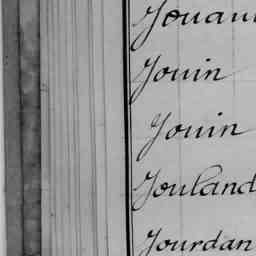 Jouin
Jouin
Jouland
Jourdan